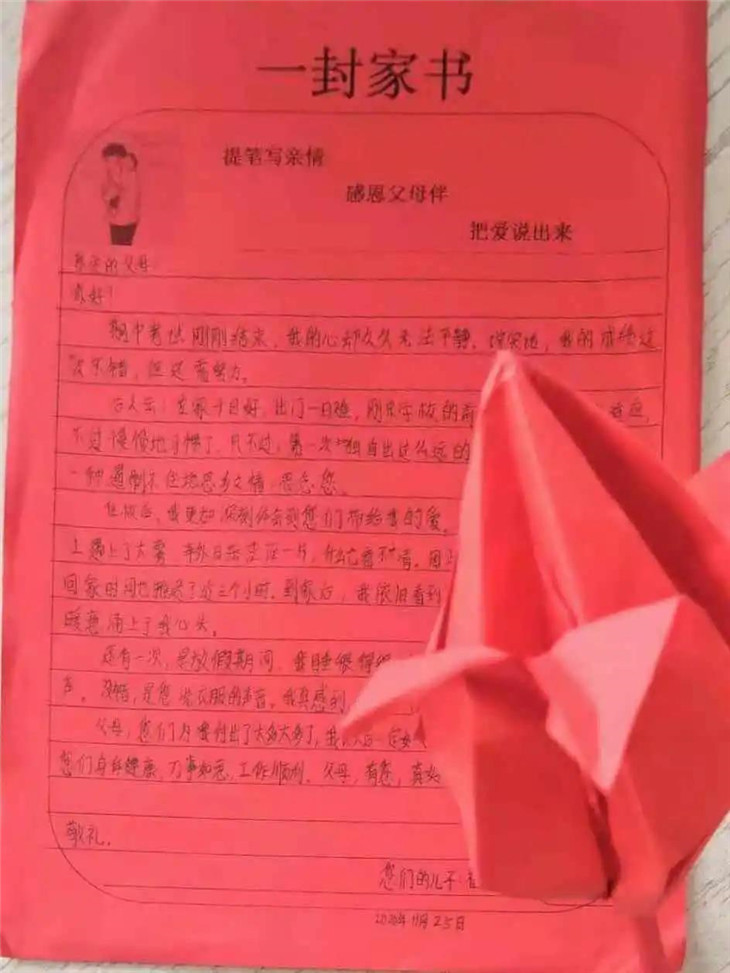 一封家书
提笔写亲情
感恩父母伴
把爱说出来
亲爱的父母:
您好!
期中考试刚刚结束,我的心却久久无法平静。,我的成绩还
不错,但还需努力。
古人云:在家千日好,出门一日难,刚来学校的 适应,
不过慢慢地习惯了,只不过,第一次独自出这么远的
一种遏制不住地思乡之情,思念您。
我更加深刻体会到您们带给我的爱。
上遇上了大雾,车外白茫茫一片,什么也看不清。因
回家时间也推迟了近三个小时。到家后,我依旧看到
暖意涌上了我心头。
还有一次,是放假期间,我睡得
声。没错,是您洗衣服的声音。我真感到
父母,您们为我付出了太多太多了,我一定
您们身体健康,万事如意,工作顺利。父母,有您,真好
敬礼。
您们的儿子
2020年11月25日